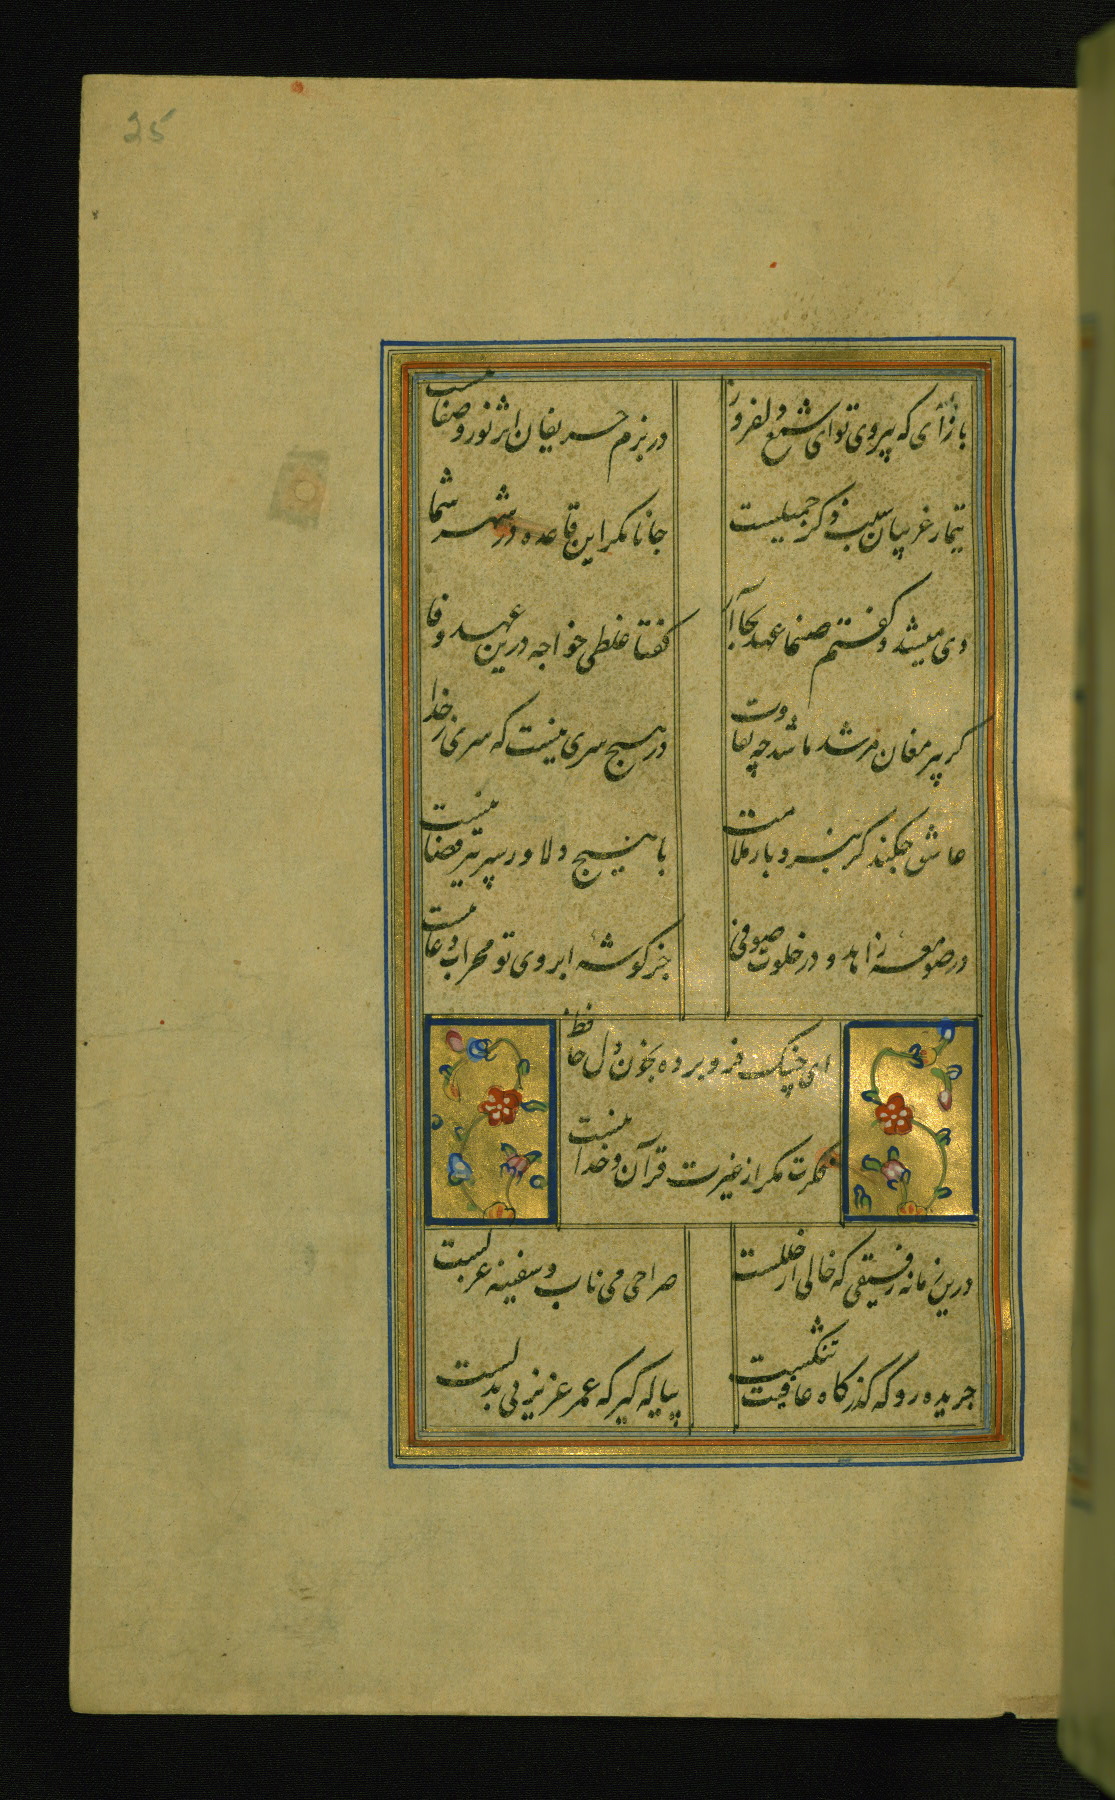 25
بازآی که بیروی تو ای شمع دلفروز
در بزم حریفان اثر نور و صفا نیست
تیمار غریبان سبب ذکر جمیلست
جانا مکر این قاعده در شهر شما نیست
دی میشد و کفتم صنما عهد بجا آر
کفتا غلطی خواجه درین عهد وفا نیست
کر پیر مغان مرشد ما شد چه تفاوت
در هیچ سری نیست که سری ز خدا نیست
عاشق چکند کر نبرد بار ملامت
با هیچ دلاور سپر تیر قضا نیست
در صومعه زاهد و در خلوت صوفی
جز کوشه ابروی تو محراب دعا نیست
ای چنک فرو برده بخون دل حافظ
فکرت مکر از غیرت قرآن و خدا نیست
درین زمانه رفیقی که خالی از خللست
صراحی می ناب و سفینه غزلست
جریده رو که کذرکاه عافیت تنکست
پیاله کیر که عمر عزیز بی بدلست